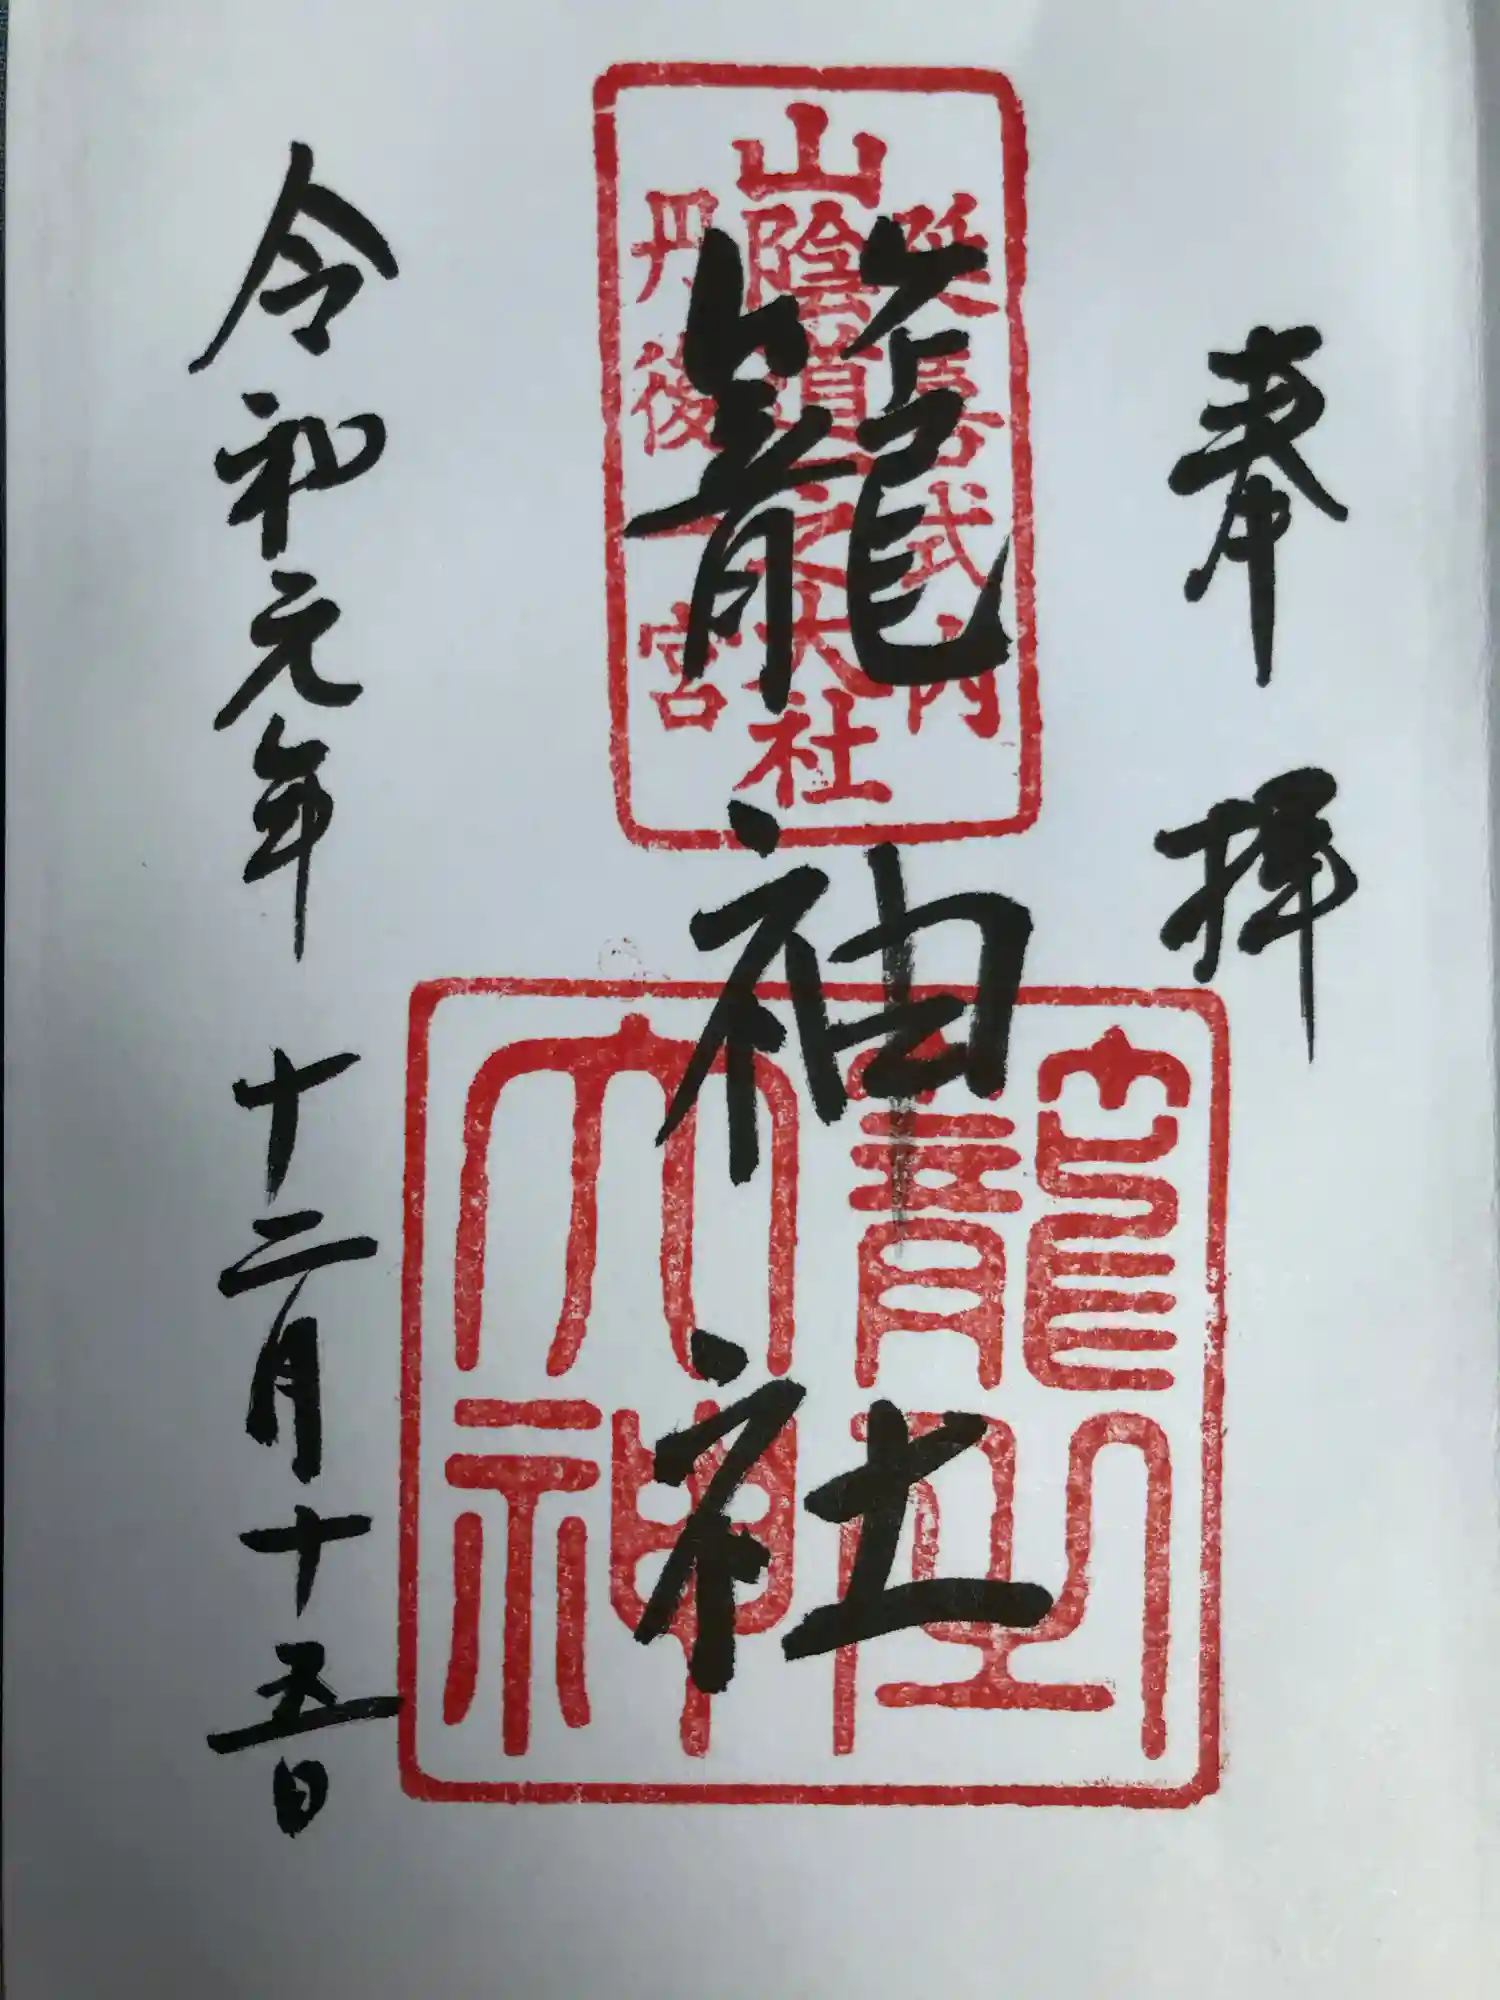 奉拝
延喜式内
山陰道之大社
丹後一宮
籠神社
籠
大神
令和元年十二月十五日